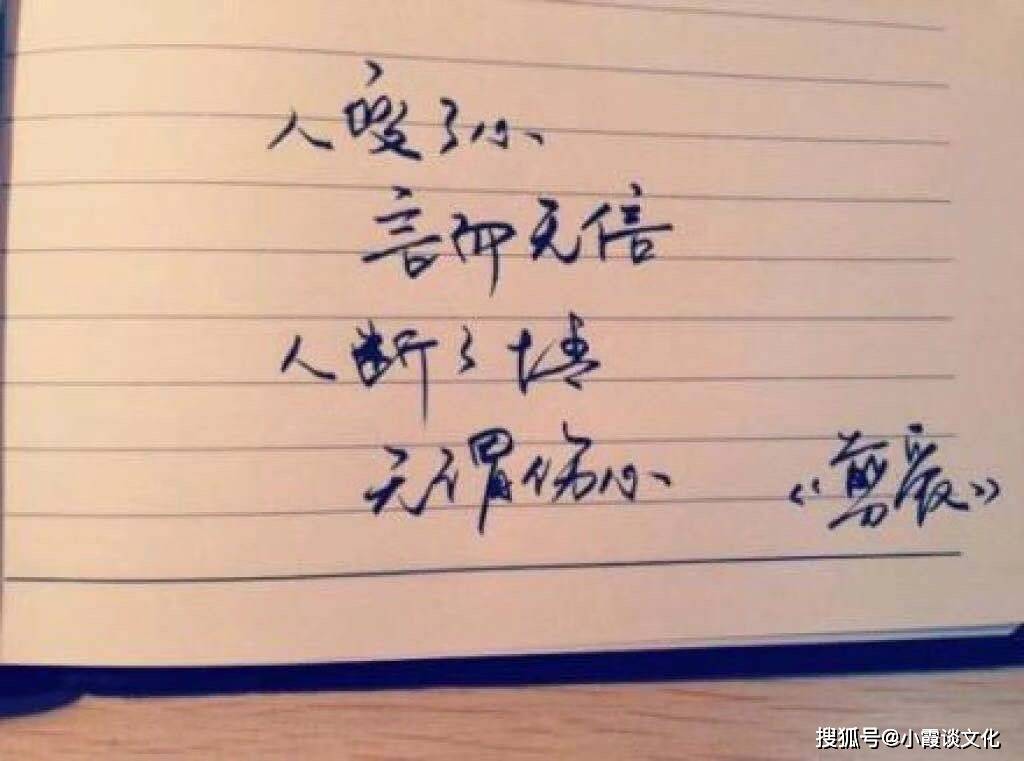 人变了心
言而无信
人断了情
无谓伤心 《剪爱》
搜狐号@小霞谈文化